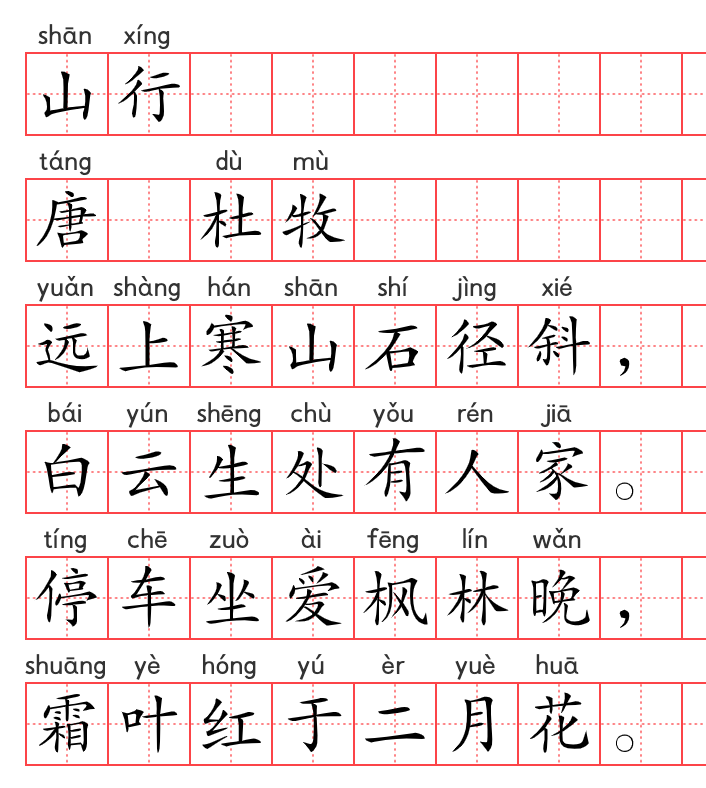 shān xíng
山行
táng dù mù
唐 杜牧
yuǎn shàng hán shān shí jìng xié
远上寒山石径斜，
bái yún shēng chù yǒu rén jiā
白云生处有人家。
tíng chē zuò ài fēng lín wǎn
停车坐爱枫林晚，
shuāng yè hóng yú èr yuè huā
霜叶红于二月花。